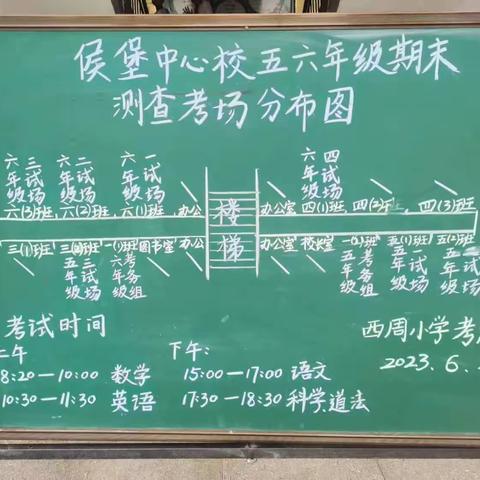 侯堡中心校五六年级期末
测查考场分布图
六年级 三试场
六年级 二试场
六年级 一试场
六年级 四试场
六(3)班 六(2)班 六(1)班 办公 楼梯 办公室 四(1)班 四(2)班 四(3)班
三(1)班 三(2)班 一(1)班 图书室 办公 办公室 校长室 一(2)班 五(1)班 五(2)班
五年级 三试场
六年级 考务组
五年级 考务组
五年级 一试场
五年级 二试场
考试时间
西周小学考
上午
下午:
2023.6.
8:20—10:00 数学
15:00—17:00 语文
10:30—11:30 英语
17:30—18:30 科学道法